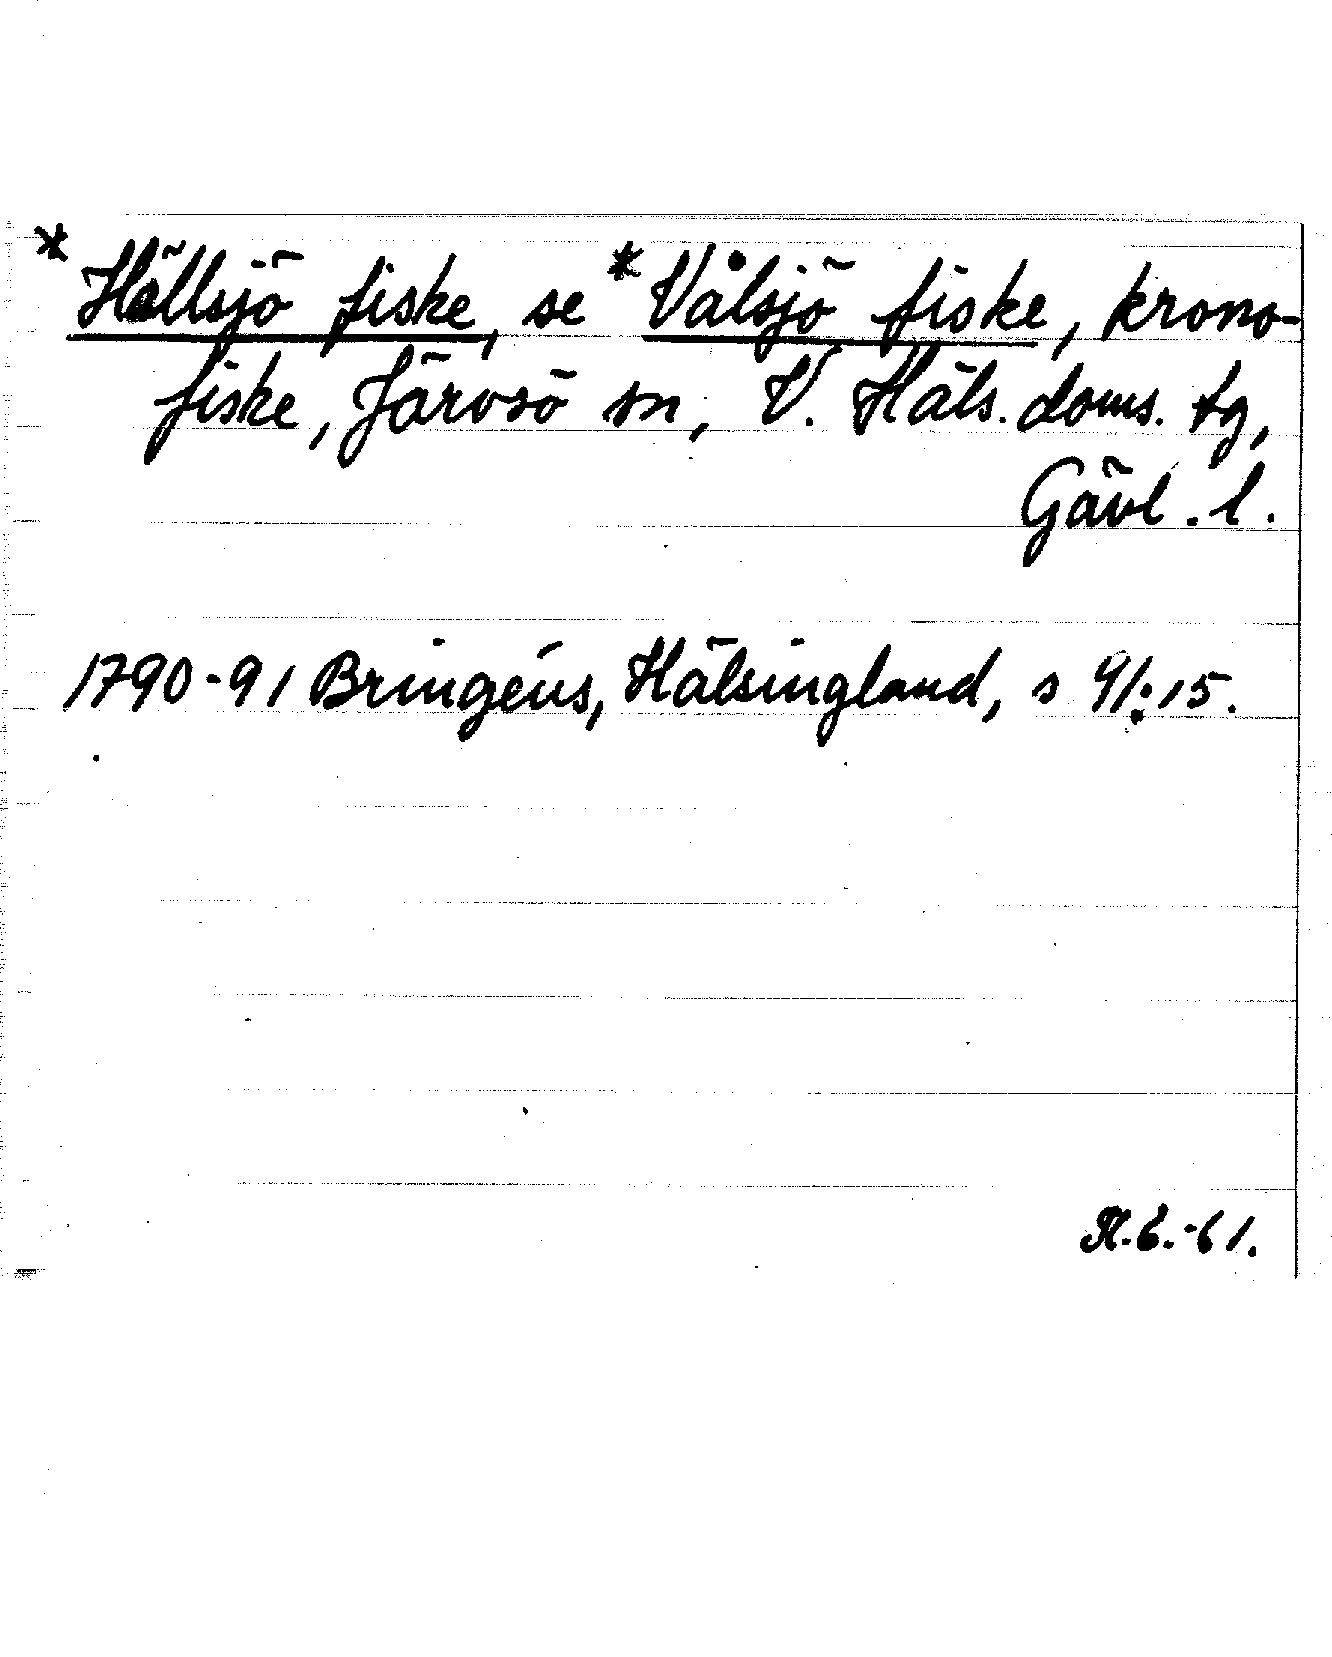 * Hällsjö fiske, se * Vålsjö fiske, krono-
fiske, Järvsö sn, V. Häls. doms. tg,
Gävl. l.
1790-91 Bringéus, Hälsingland, s 91:15.
R.E.-61.